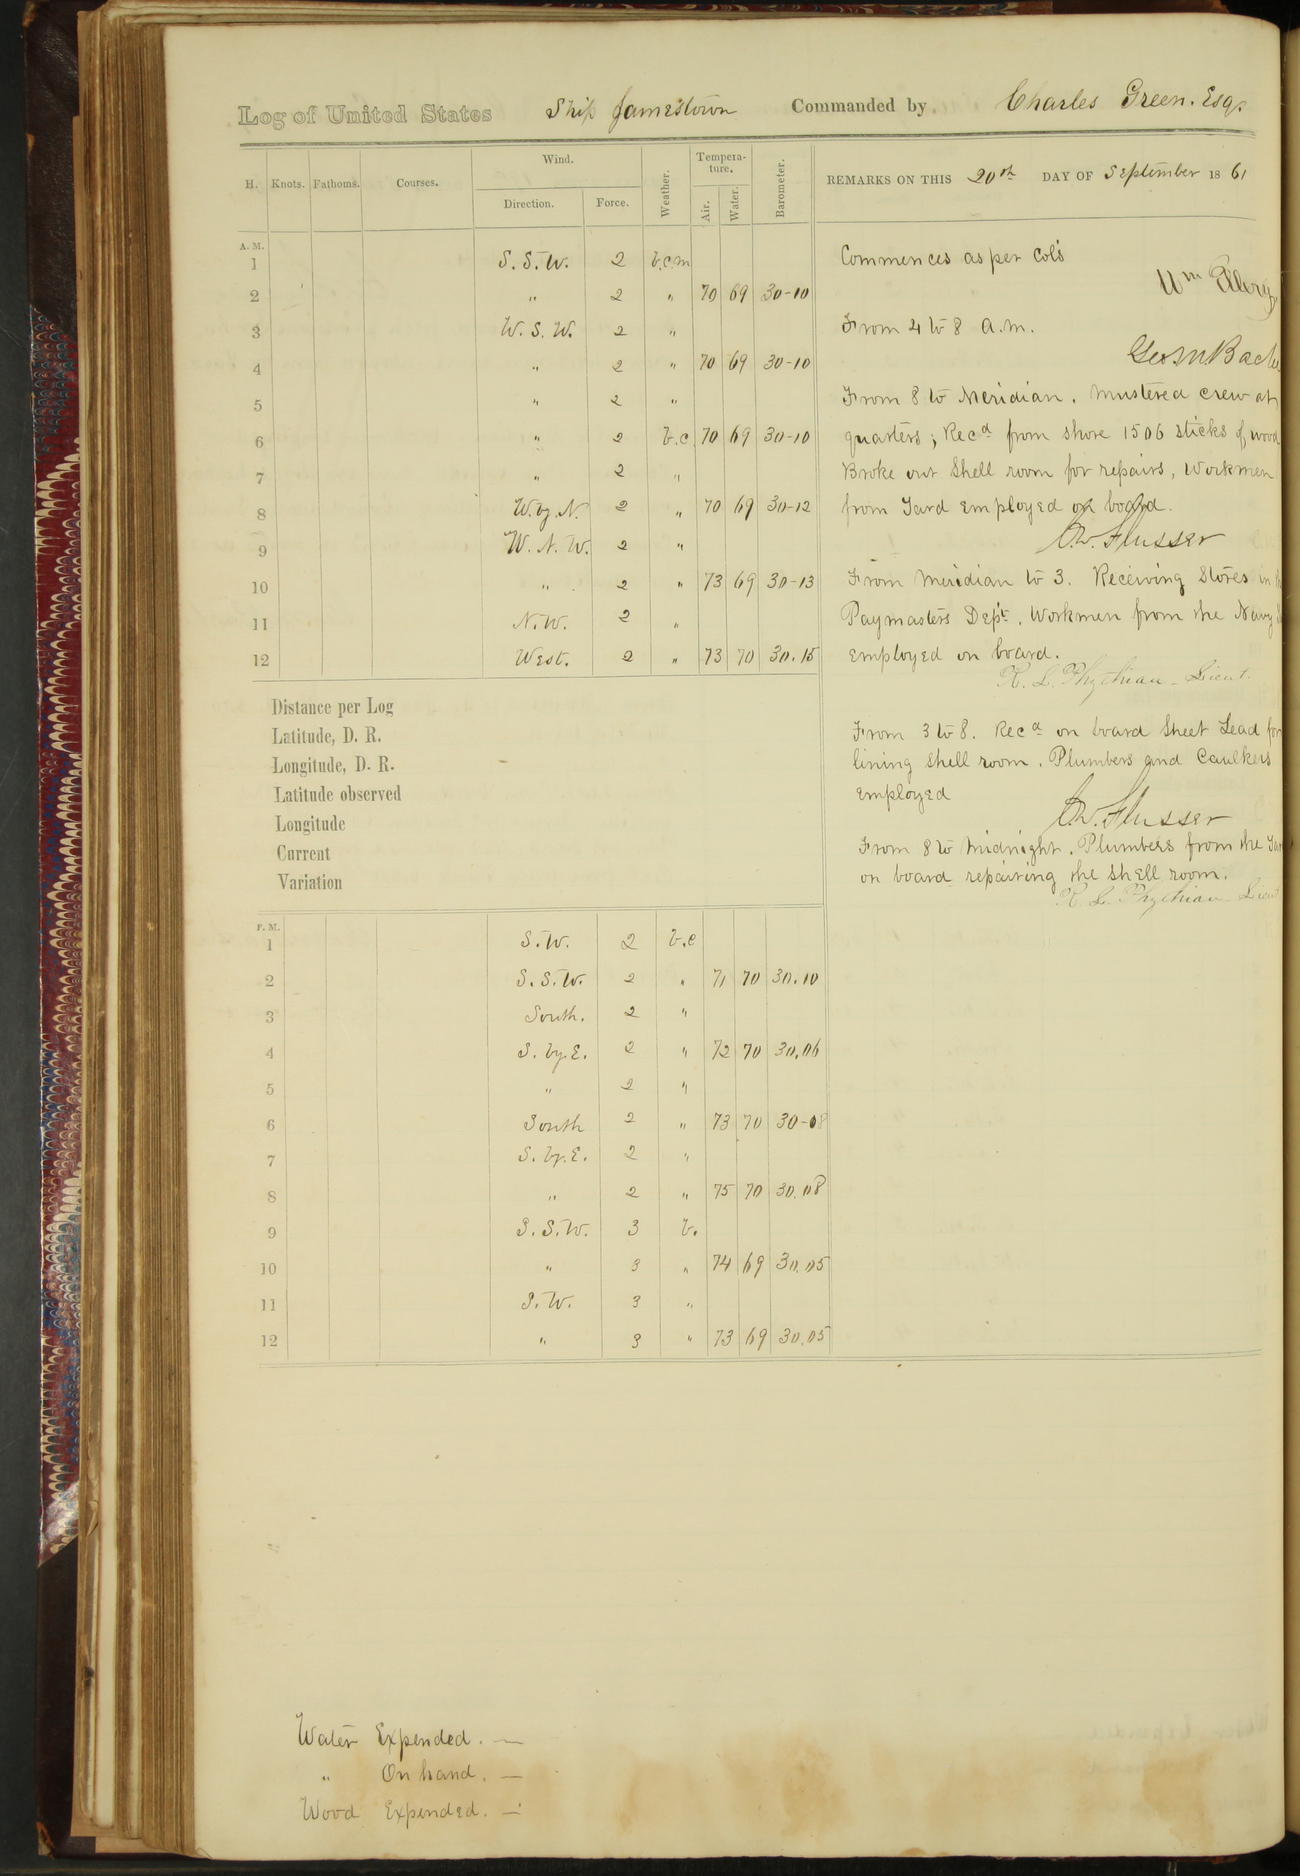 Log of United States Ship Jamestown Commanded by Charles Green. Esq.
H. Knots. Fathoms. Courses. Wind. Direction. Force. Weather. Tempera-ture. Air. Water. Barometer.
REMARKS ON THIS 20th DAY OF September 1861
A. M.
1 S. S. W. 2 b.c.m
2 " 2 " 70 69 30-10
3 W. S. W. 2 "
4 " 2 " 70 69 30-10
5 " 2 "
6 " 2 b.c. 70 69 30-10
7 " 2 "
8 W. by. N. 2 " 70 69 30-12
9 W. N. W. 2 "
10 " 2 " 73 69 30-13
11 N. W. 2 "
12 West. 2 " 73 70 30.15
Distance per Log
Latitude, D. R.
Longitude, D. R.
Latitude observed
Longitude
Current
Variation
P. M.
1 S. W. 2 b.c
2 S. S. W. 2 " 71 70 30.10
3 South. 2 "
4 S. by. E. 2 " 72 70 30.06
5 " 2 "
6 South 2 " 73 70 30-08
7 S. by. E. 2 "
8 " 2 " 75 70 30.08
9 S. S. W. 3 b.
10 " 3 " 74 69 30.05
11 S. W. 3 "
12 " 3 " 73 69 30.05
Commences as per Col's
Wm
From 4 to 8 a.m.
Geo. M. Bache
From 8 to Meridian. Mustered crew at
quarters; Recd from shore 1506 sticks of wood
Broke out Shell room for repairs, Workmen
from Yard employed on board.
C. W. Flusser
From Meridian to 3. Receiving Stores in
Paymasters Dept. Workmen from the Navy
employed on board.
R. L. Phythian - Lieut.
From 3 to 8. Recd on board Sheet Lead for
lining shell room. Plumbers and Caulkers
employed
C. W. Flusser
From 8 to Midnight. Plumbers from the Yar
on board repairing the shell room.
R. L. Phythian Lieut
Water Expended. —
" On hand. —
Wood Expended. —